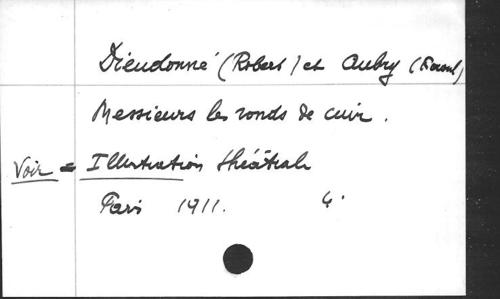 Dieudonné (Robert) et Aubry (Raoul)
Messieurs les ronds de cuir.
Voir = Illustration théâtrale
Paris 1911. 4°